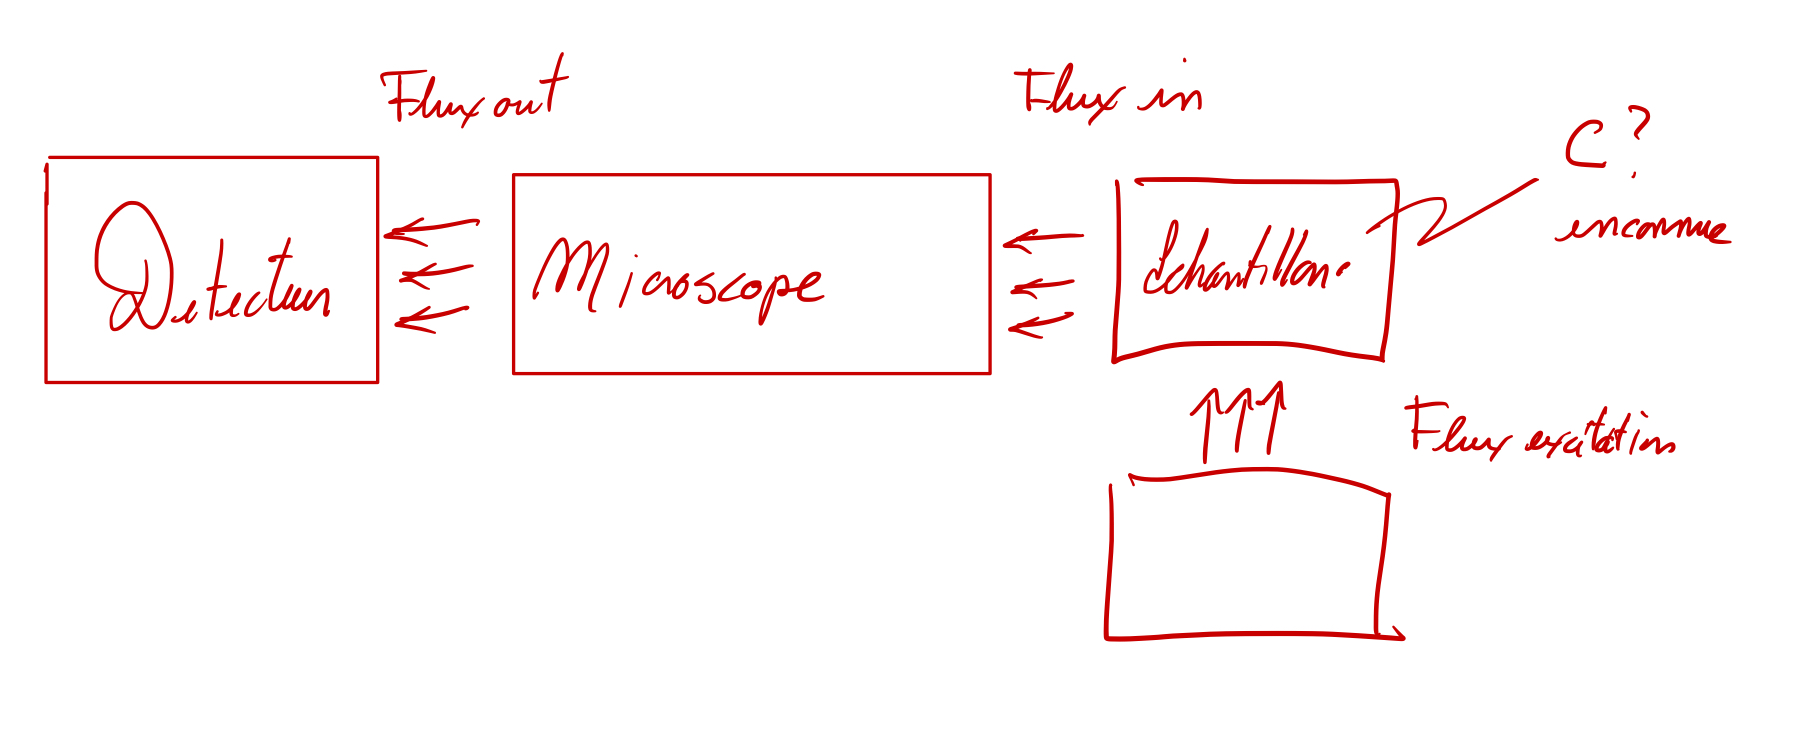 Flux out
Flux in
C?
inconnue
Detecteur
Microscope
Echantillon
Flux excitation